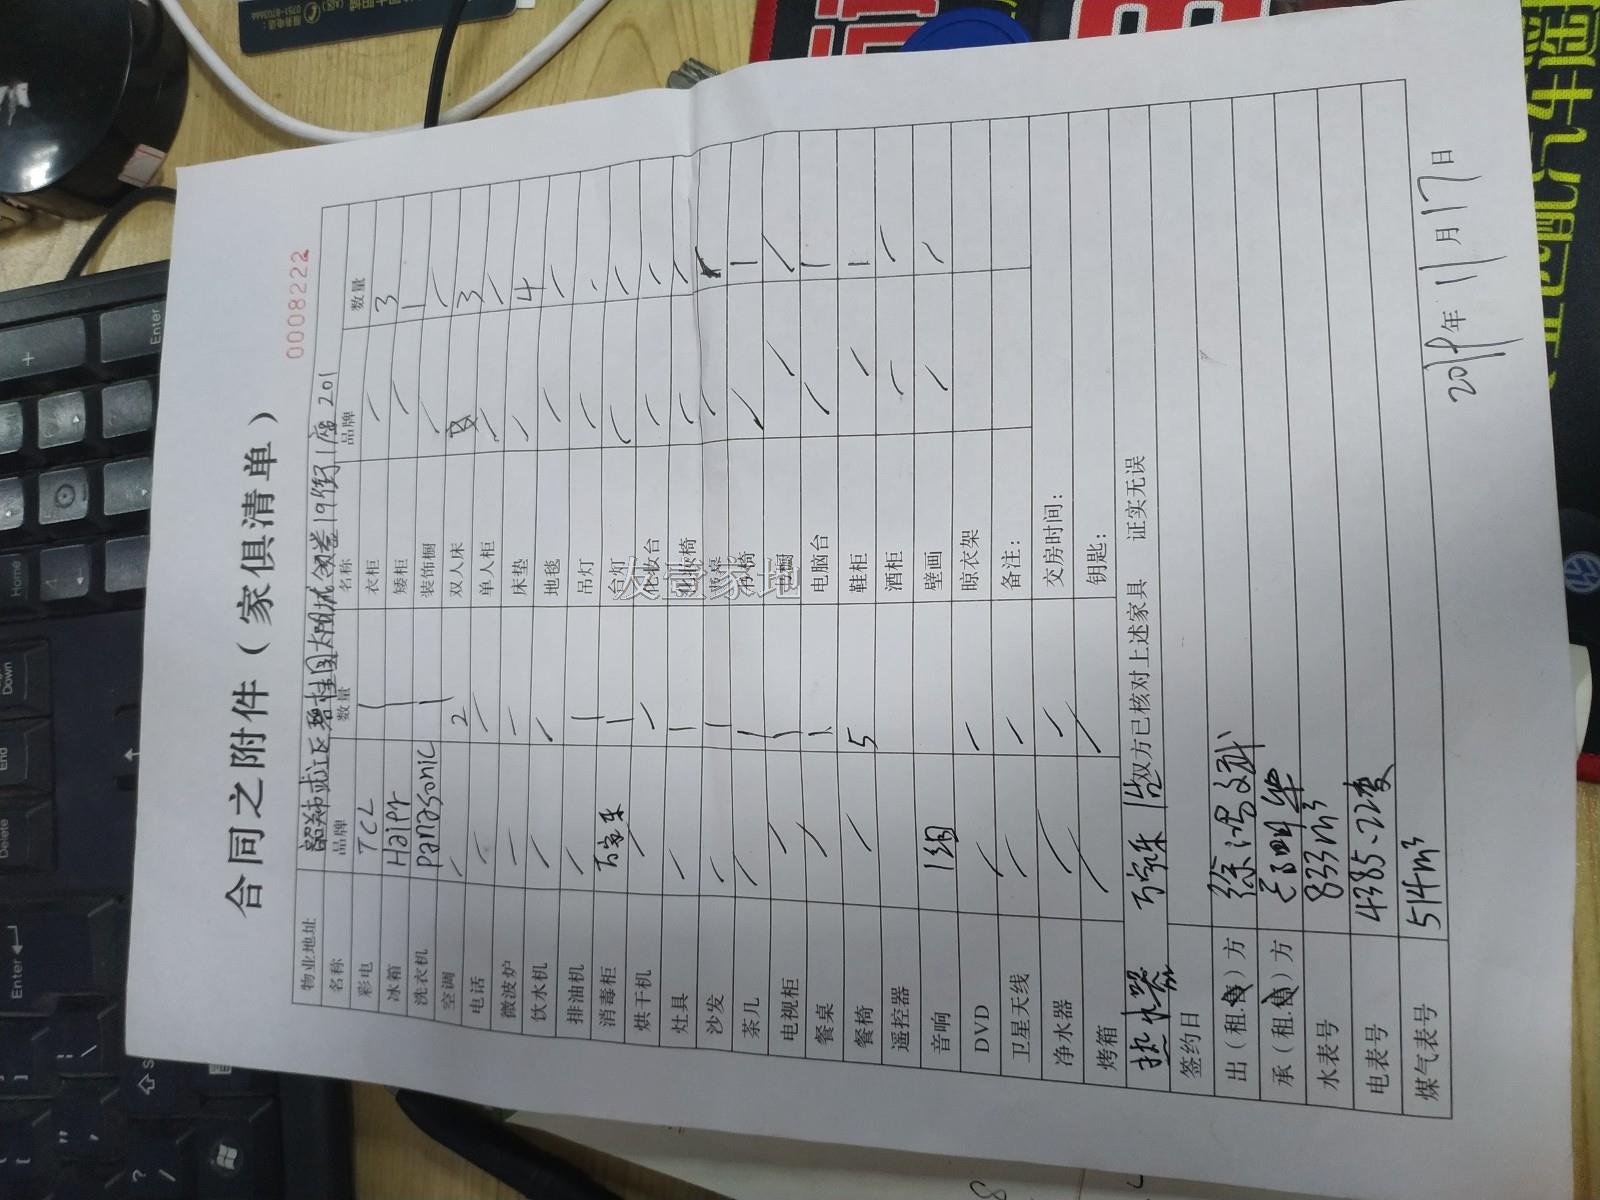 合同之附件（家俱清单）
0008222
物业地址 韶关市武江区碧桂园太阳城 19街1座201
名称 品牌 数量 名称 品牌 数量
彩电 TCL 1 衣柜 / 3
冰箱 Haier 1 矮柜 / 1
洗衣机 panasonic 1 装饰橱 / /
空调 / 2 双人床 3
电话 / / 单人柜 / /
微波炉 / / 床垫 / 4
饮水机 / / 地毯 / /
排油机 / 1 吊灯 /
消毒柜 万家乐 1 台灯 / /
烘干机 / / 化妆台 / /
灶具 / 1 / /
沙发 / 1 /
茶几 / 1 / 1
电视柜 / 1 / /
餐桌 / 1 电脑台 / 1
餐椅 / 5 鞋柜 / 1
遥控器 酒柜 / /
音响 1组 壁画 / /
DVD / / 晾衣架
卫星天线 / / 备注：
净水器 / / 交房时间：
烤箱 / / 钥匙：
热水器 万家乐 1台 双方已核对上述家具 证实无误
签约日
出（租.售）方
承（租.售）方
水表号 833m³
电表号 4385.22度
煤气表号 514m³
2019年11月17日
友宝家地
Enter
+
Home
Delete
End
Down
Enter